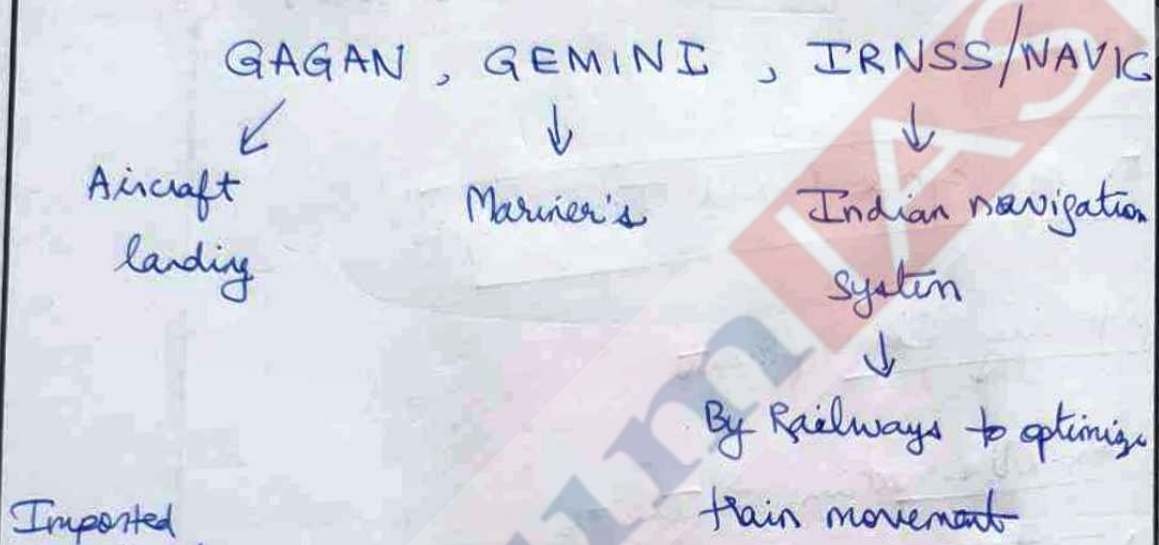 GAGAN , GEMINI , IRNSS/NAVIC
Aircraft landing
Mariner's
Indian navigation system
By Railways to optimize train movement
Imported
IAS